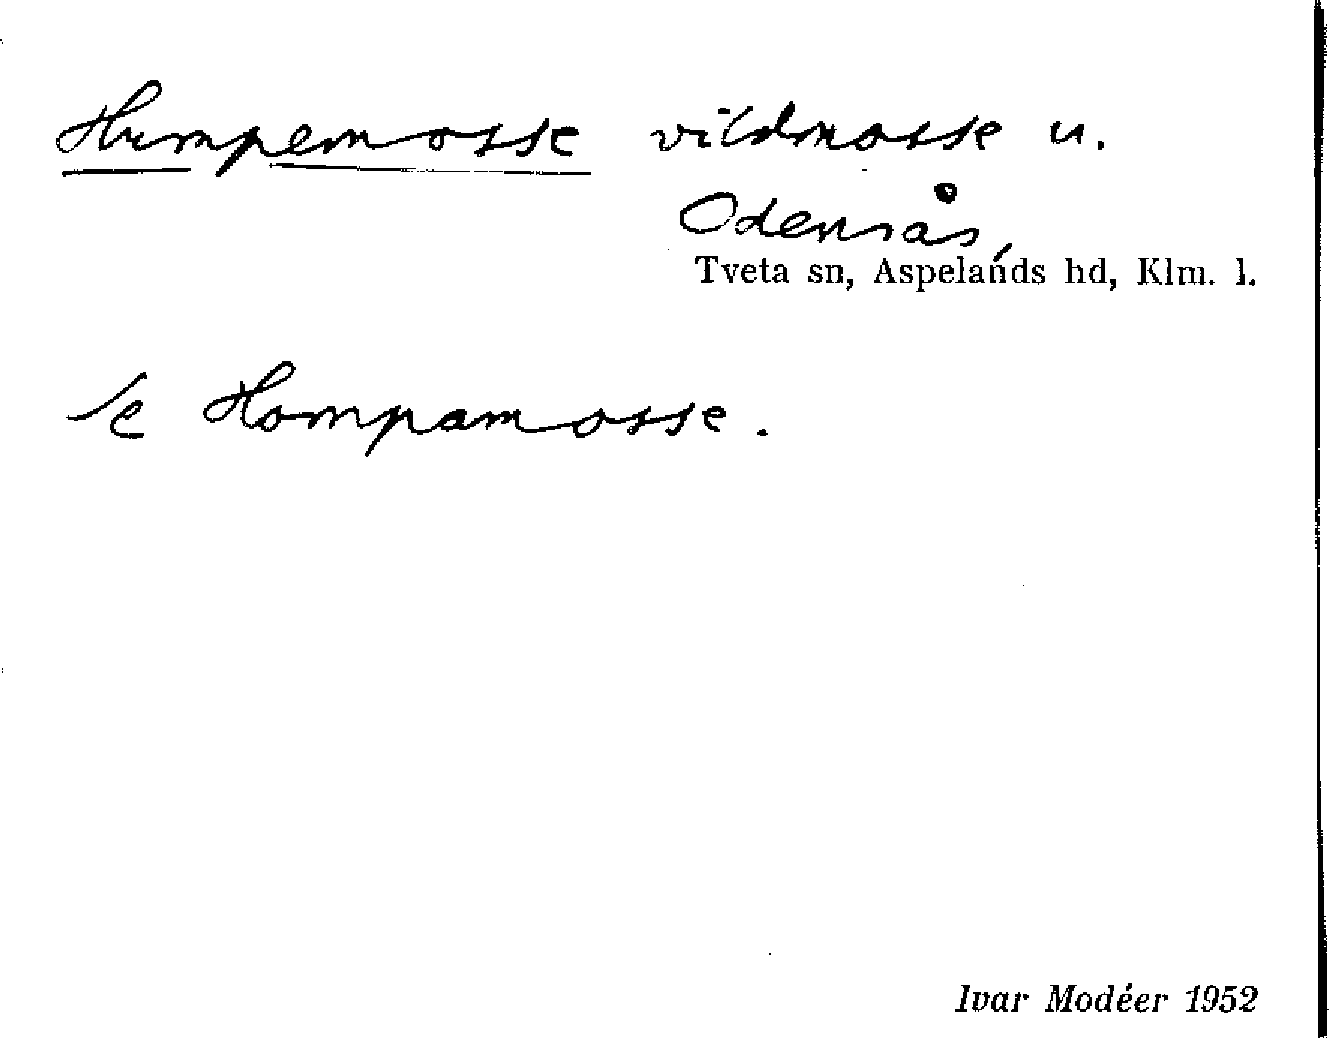 Humpemosse vildmosse u.
Odensås,
Tveta sn, Aspelands hd, Klm. l.
/e Hompamosse.
Ivar Modéer 1952